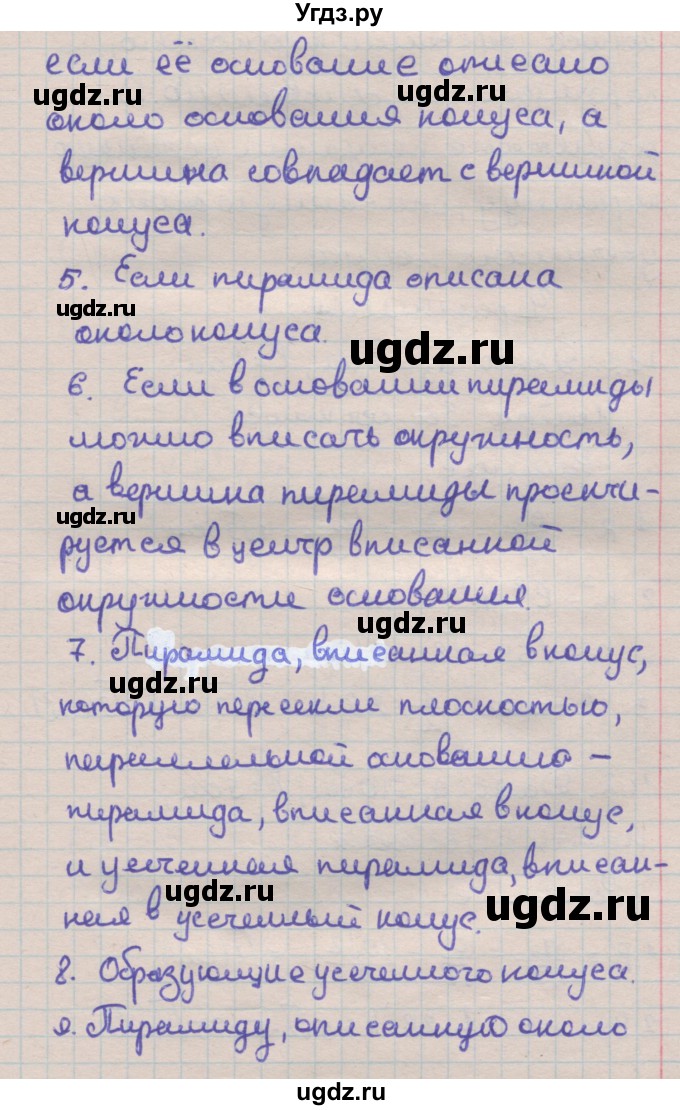 Угдз.ру
если её основание описано
ugdz.ru ugdz.ru
около основания конуса, а
вершина совпадает с вершиной
конуса.
5. Если пирамида описана
ugdz.ru
около конуса.
ugdz.ru
6. Если в основании пирамиды
можно вписать окружность,
а вершина пирамиды проекти-
ugdz.ru
руется в центр вписанной
окружности основания.
ugdz.ru
7. Пирамида, вписанная в конус,
ugdz.ru
которую пересекли плоскостью,
параллельной основанию –
пирамида, вписанная в конус,
и усеченная пирамида, вписан-
ugdz.ru ugdz.ru
ная в усеченный конус.
8. Образующие усеченного конуса.
9. Пирамиду, описанную около
ugdz.ru